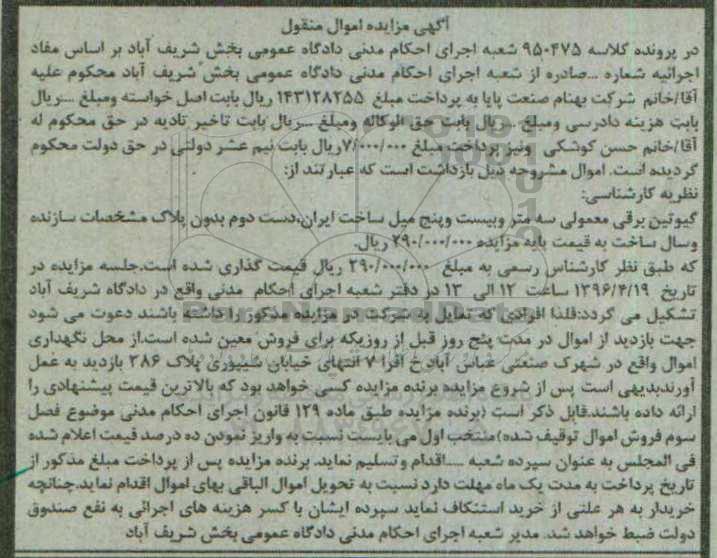 آگهی مزایده اموال منقول
در پرونده کلاسه ۹۵۰۴۷۵ شعبه اجرای احکام مدنی دادگاه عمومی بخش شریف آباد بر اساس مفاد
اجرائیه شماره ...صادره از شعبه اجرای احکام مدنی دادگاه عمومی بخش شریف آباد محکوم علیه
آقا/خانم شرکت بهنام صنعت پایا به پرداخت مبلغ ۱۴۳۱۲۸۲۵۵ ریال بابت اصل خواسته ومبلغ ...ریال
بابت هزینه دادرسی ومبلغ ...ریال بابت حق الوکاله ومبلغ ...ریال بابت تاخیر تادیه در حق محکوم له
آقا/خانم حسن کوشکی ونیز پرداخت مبلغ ۷/۰۰۰/۰۰۰ریال بابت نیم عشر دولتی در حق دولت محکوم
گردیده است. اموال مشروحه ذیل بازداشت است که عبارتند از:
نظریه کارشناسی:
گیوتین برقی معمولی سه متر وبیست وپنج میل ساخت ایران،دست دوم بدون پلاک مشخصات سازنده
وسال ساخت به قیمت پایه مزایده ۲۹۰/۰۰۰/۰۰۰ ریال.
که طبق نظر کارشناس رسمی به مبلغ ۲۹۰/۰۰۰/۰۰۰ ریال قیمت گذاری شده است.جلسه مزایده در
تاریخ ۱۳۹۶/۴/۱۹ ساعت ۱۲ الی ۱۳ در دفتر شعبه اجرای احکام مدنی واقع در دادگاه شریف آباد
تشکیل می گردد:فلذا افرادی که تمایل به شرکت در مزایده مذکور را داشته باشند دعوت می شود
جهت بازدید از اموال در مدت پنج روز قبل از روزیکه برای فروش معین شده است.از محل نگهداری
اموال واقع در شهرک صنعتی عباس آباد خ افرا ۷ انتهای خیابان شیپوری پلاک ۲۸۶ بازدید به عمل
آورند بدیهی است پس از شروع مزایده برنده مزایده کسی خواهد بود که بالاترین قیمت پیشنهادی را
ارائه داده باشند.قابل ذکر است (برنده مزایده طبق ماده ۱۲۹ قانون اجرای احکام مدنی موضوع فصل
سوم فروش اموال توقیف شده)منتخب اول می بایست نسبت به واریز نمودن ده درصد قیمت اعلام شده
فی المجلس به عنوان سپرده شعبه ....اقدام وتسلیم نماید. برنده مزایده پس از پرداخت مبلغ مذکور از
تاریخ پرداخت به مدت یک ماه مهلت دارد نسبت به تحویل اموال الباقی بهای اموال اقدام نماید.چنانچه
خریدار به هر علتی از خرید استنکاف نماید سپرده ایشان با کسر هزینه های اجرائی به نفع صندوق
دولت ضبط خواهد شد. مدیر شعبه اجرای احکام مدنی دادگاه عمومی بخش شریف آباد